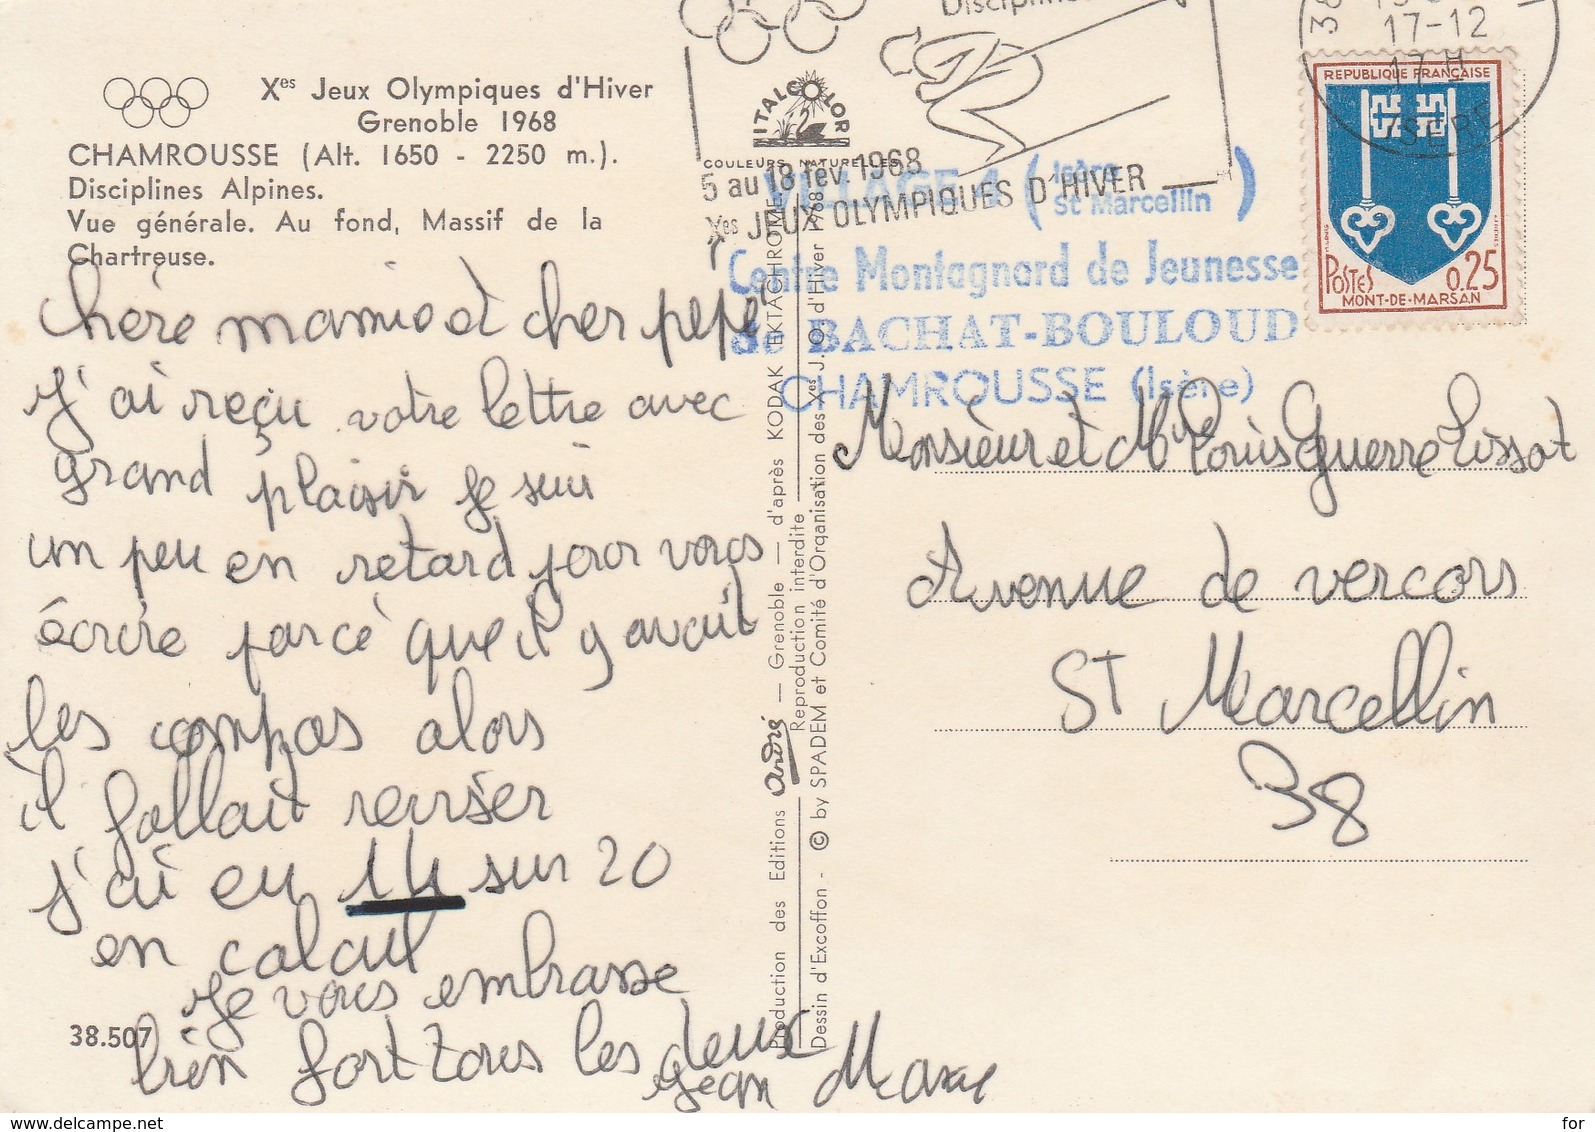 Xes Jeux Olympiques d'Hiver
Grenoble 1968
CHAMROUSSE (Alt. 1650 - 2250 m.).
Disciplines Alpines.
Vue générale. Au fond, Massif de la
Chartreuse.
Chère mamie et cher pépé
J'ai reçu votre lettre avec
grand plaisir je suis
un peu en retard pour vous
écrire parce que il y avait
les compos alors
il fallait reviser
j'ai eu 14 sur 20
en calcul
Je vous embrasse
bien fort tous les deux
Jean Marc
38.507
Disciplines
5 au 18 fév. 1968
Xes JEUX OLYMPIQUES D'HIVER
ITALCOLOR
COULEURS NATURELLES
VILLAGE 1 (Isère
St Marcellin)
Centre Montagnard de Jeunesse
de BACHAT-BOULOUD
CHAMROUSSE (Isère)
38
17-12
17 H
ISERE
REPUBLIQUE FRANÇAISE
POSTES 0.25
MONT-DE-MARSAN
Production des Editions André — Grenoble — d'après KODAK EKTACHROME
Reproduction interdite
Dessin d'Excoffon - © by SPADEM et Comité d'Organisation des Xes J. O. d'Hiver 1968
Monsieur et Mme Louis Guerre
Avenue de vercors
St Marcellin
38
for